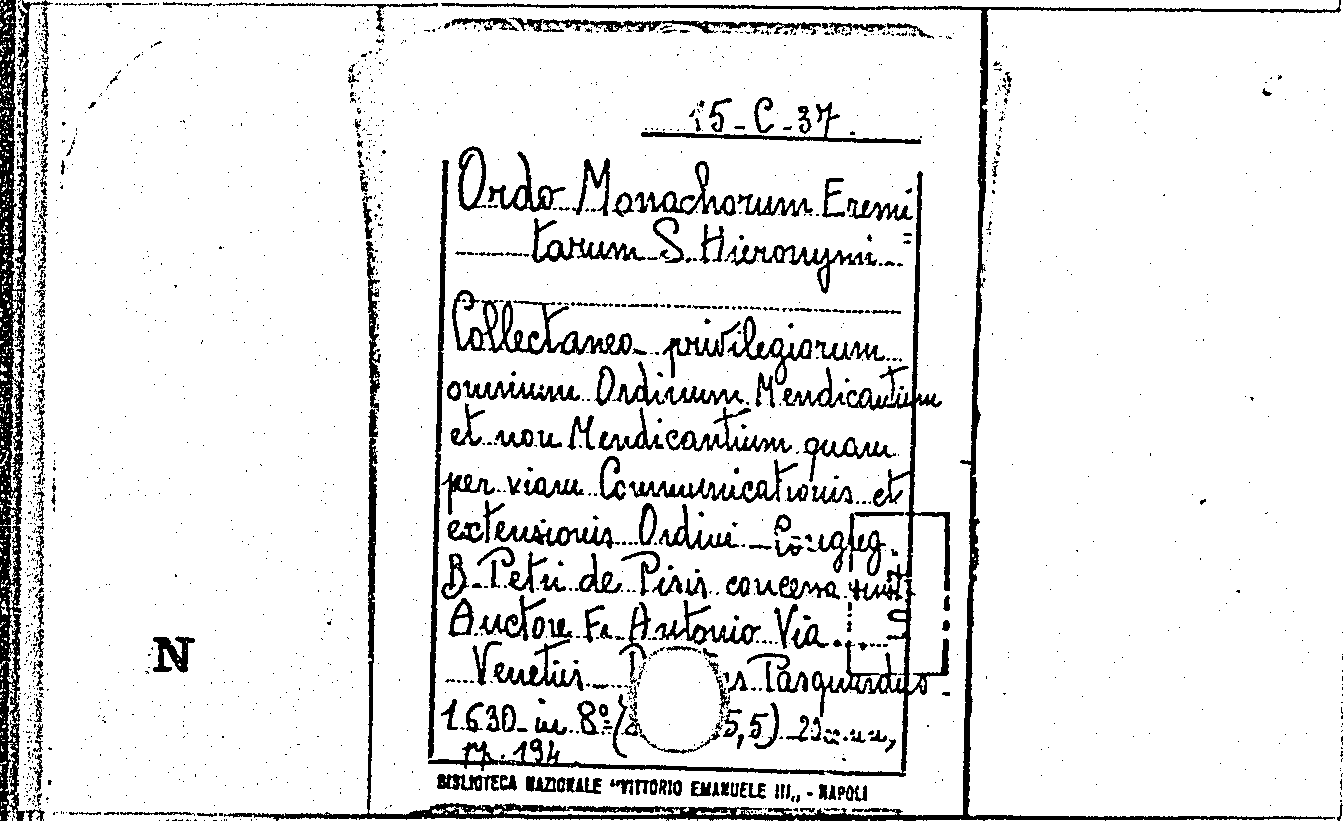 15-C-37.
Ordo Monachorum Eremi=
tarum S. Hieronymi
Collectanea privilegiorum
omnium Ordinum Mendicantium
et non Mendicantium quam
per viam Communicationis et
extensionis Ordini Congreg.
B. Petri de Pisis concessa sunt
Auctore Fr. Antonio Via...
Venetiis Pasquardus
1630 in 8º ( 5,5)
pp. 194
N
BIBLIOTECA NAZIONALE "VITTORIO EMANUELE III„ - NAPOLI